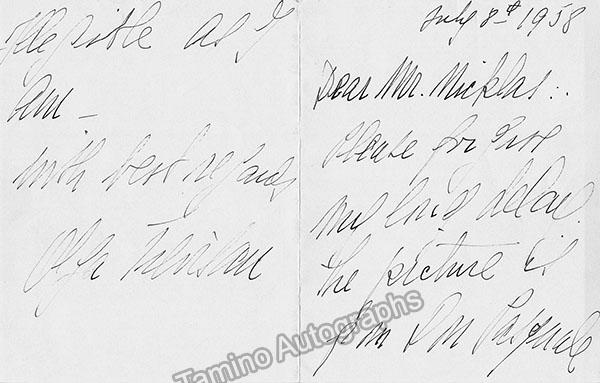 July 8th 1958
Dear Mr. Nicklas:.
Please forgive
my long delay.
The picture is
from Don Pasquale
as I
am –
with best regards
Olga
Tamino Autographs